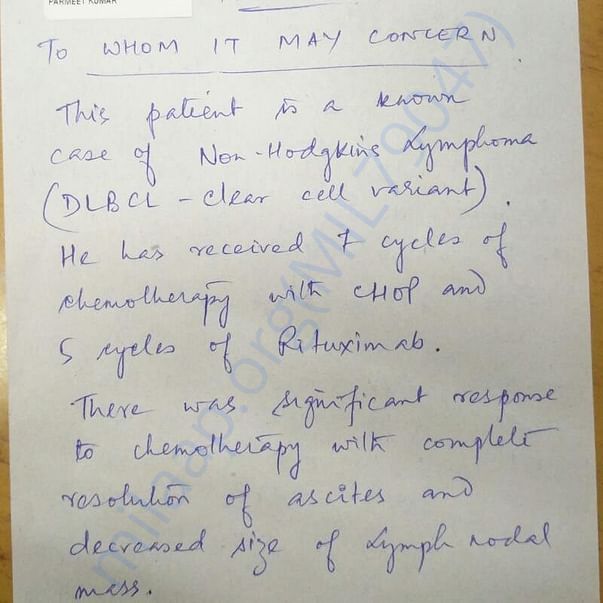 PARMEET KUMAR
TO WHOM IT MAY CONCERN.
This patient is a known
case of Non-Hodgkins Lymphoma
(DLBCL - clear cell variant).
He has received 7 cycles of
chemotherapy with CHOP and
5 cycles of Rituximab.
There was significant response
to chemotherapy with complete
resolution of ascites and
decreased size of Lymph nodal
mass.
milaap.org(MIL79047)